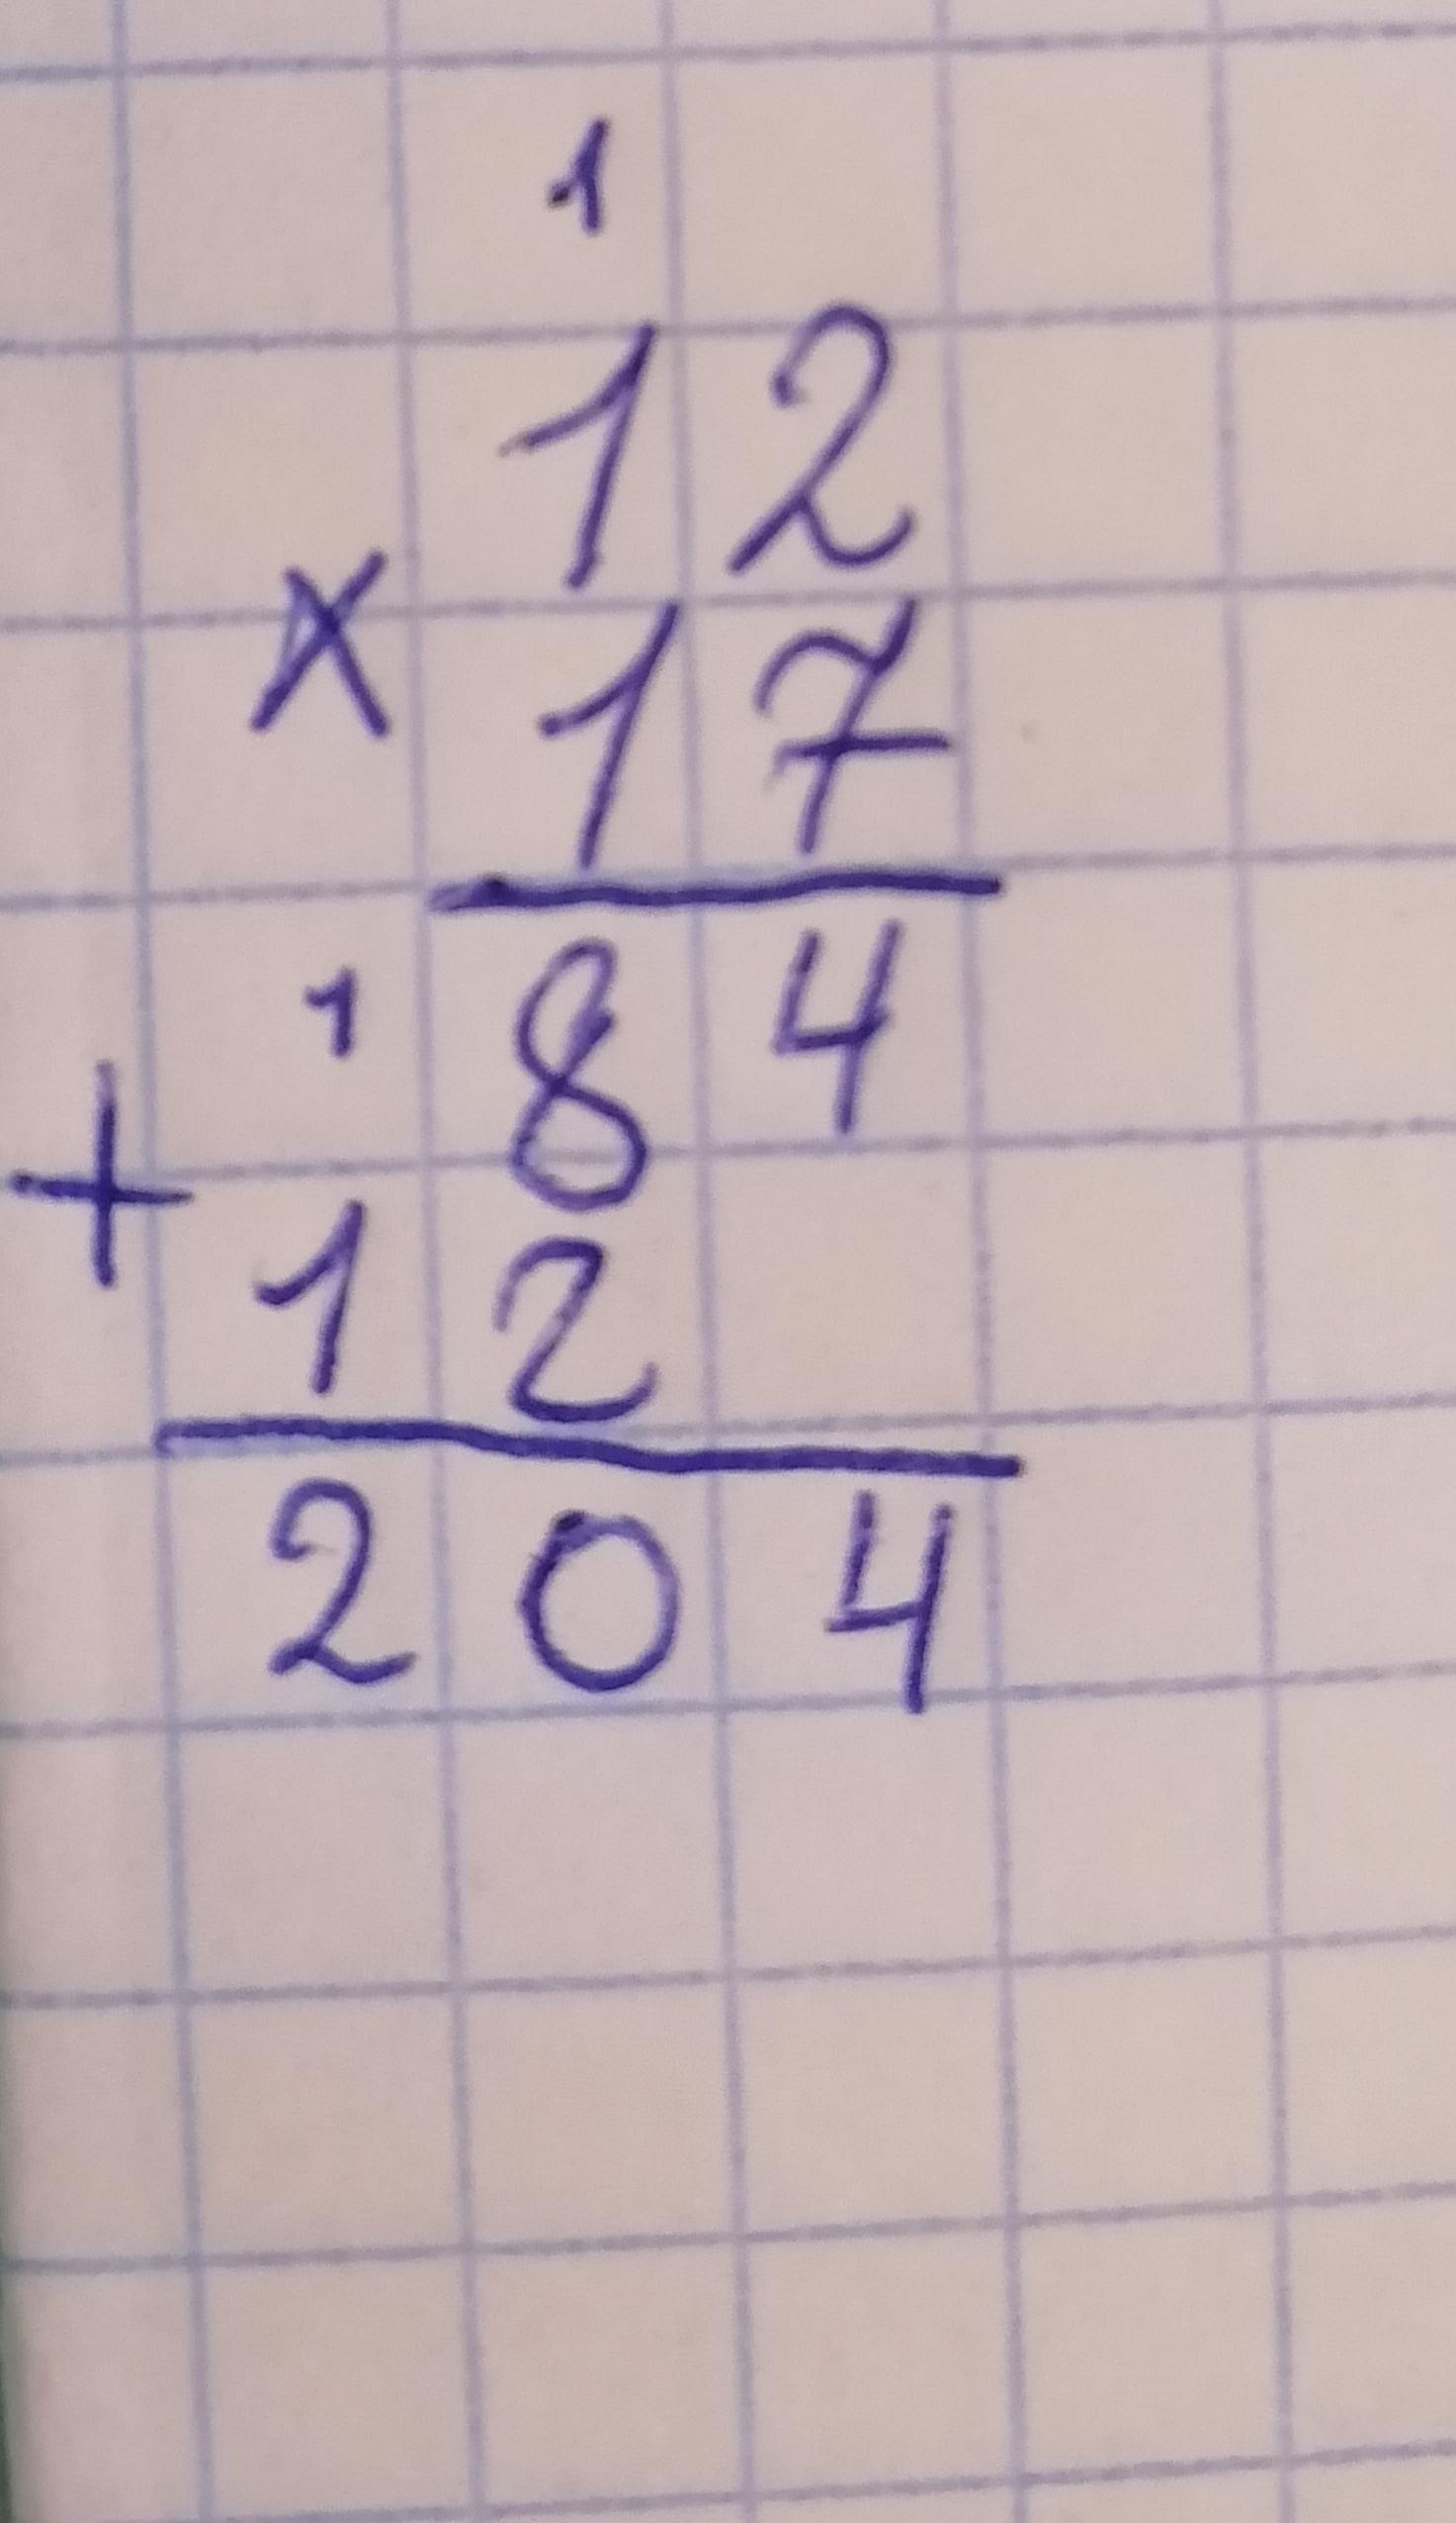 1
12
x
17
1
84
+
12
204